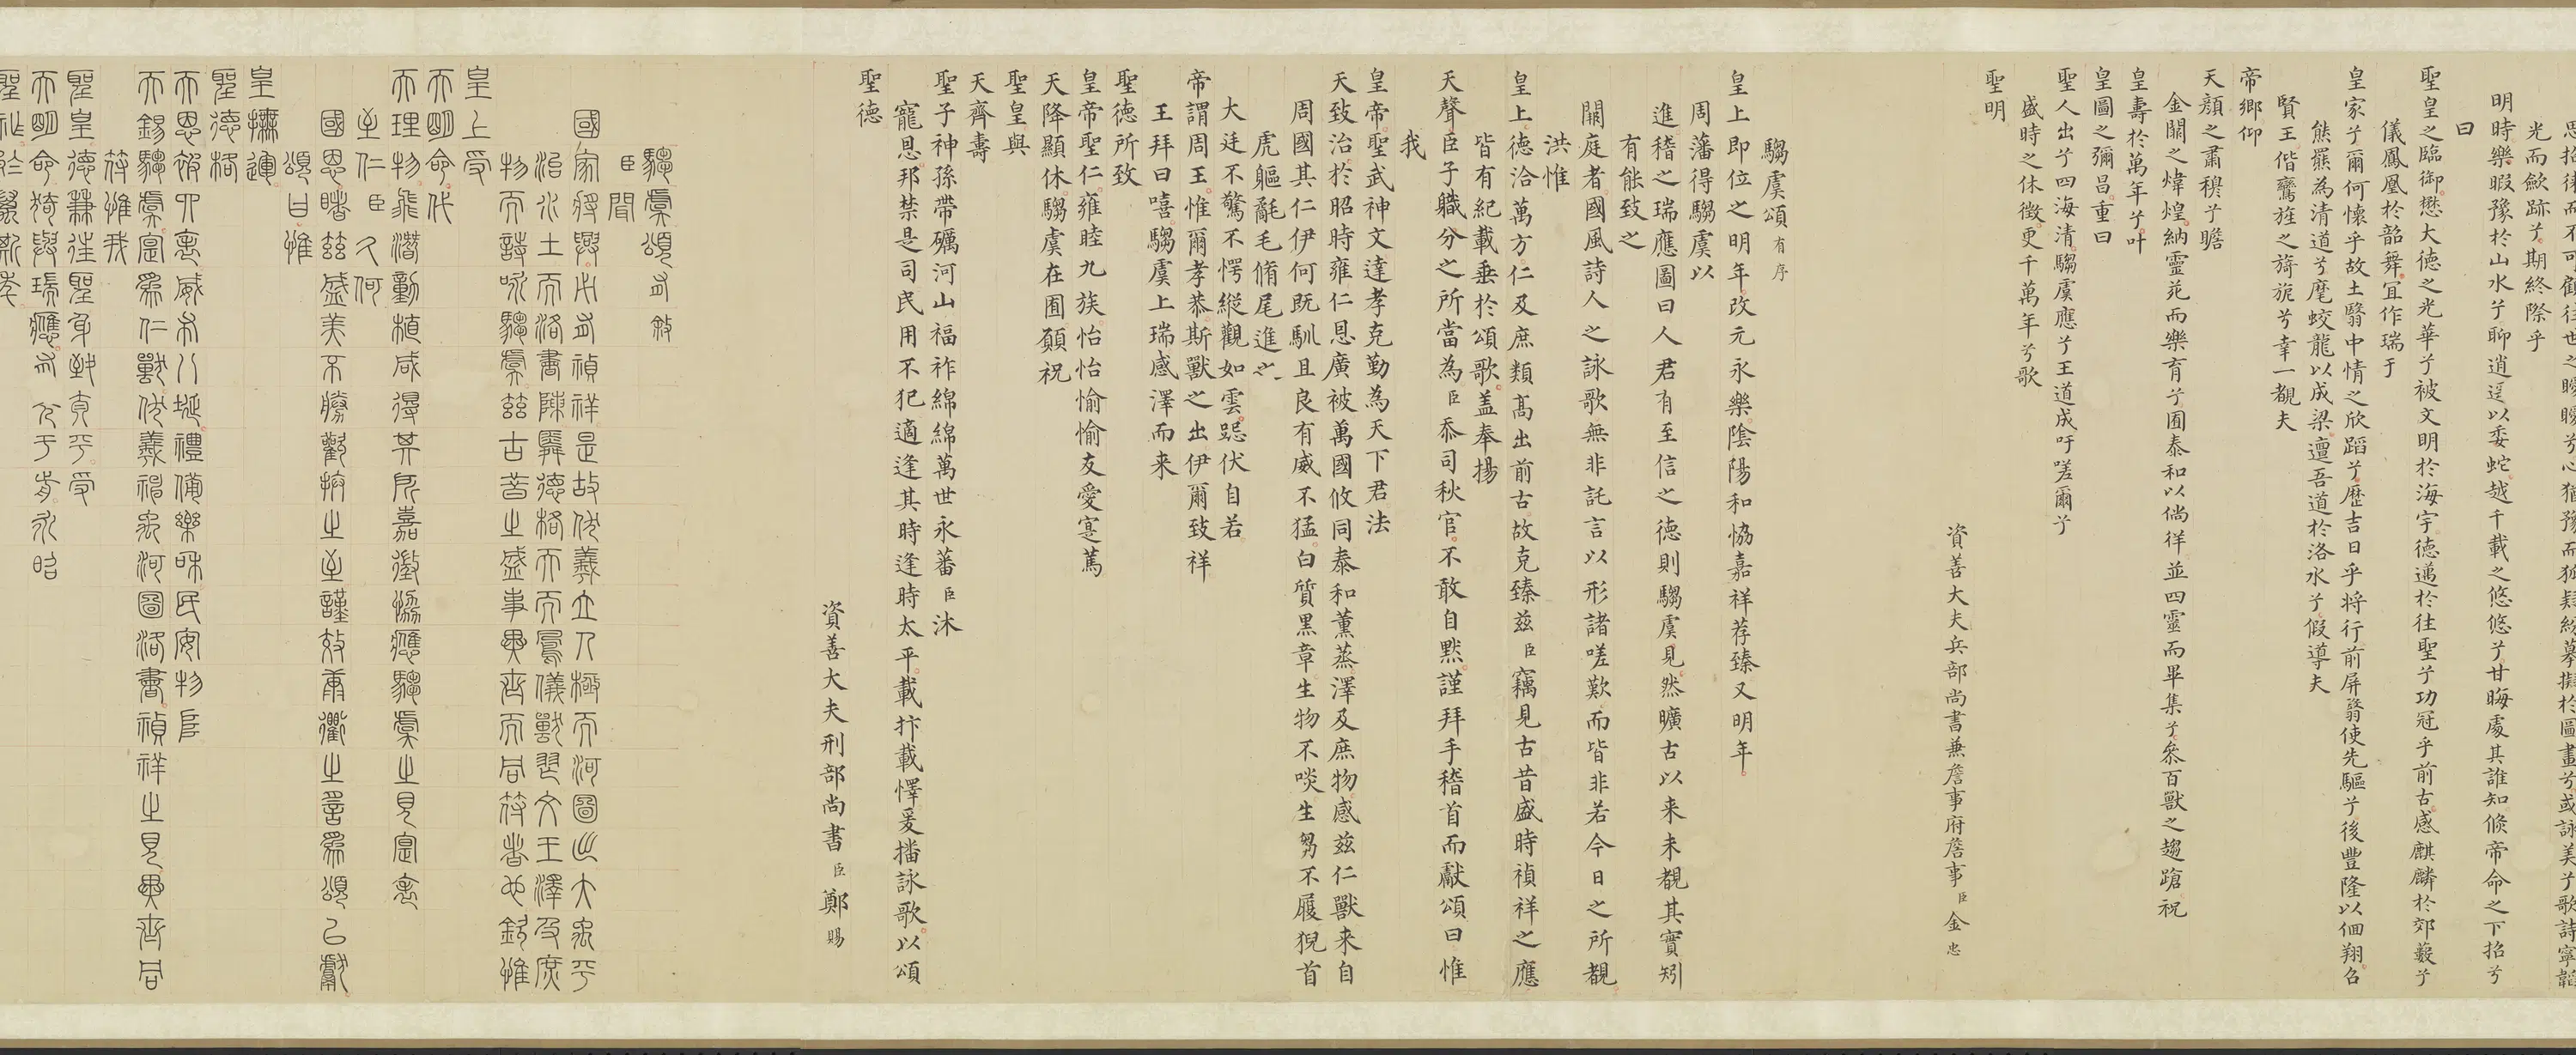 光而斂跡兮期終際乎
明時樂暇豫於山水兮聊逍遥以委蛇越千載之悠悠兮甘晦處其誰知倏帝命之下招兮
曰
聖皇之臨御懋大德之光華兮被文明於海宇德邁於往聖兮功冠乎前古感麒麟於郊藪兮
儀鳳凰於韶舞宜作瑞于
皇家兮爾何懷乎故土翳中情之欣蹈兮歷吉日乎将行前屏翳使先驅兮後豐隆以徊翔召
熊羆為清道兮麾蛟龍以成梁邅吾道於洛水兮假導夫
賢王偕鸞旌之旖旎兮幸一覩夫
帝鄉仰
天顔之肅穆兮瞻
金闕之煒煌納靈苑而樂育兮囿泰和以徜徉並四靈而畢集兮叅百獸之趨蹌祝
皇壽於萬年兮叶
皇圖之彌昌重曰
聖人出兮四海清騶虞應兮王道成吁嗟爾兮
盛時之休徴更千萬年兮歌
聖明
資善大夫兵部尚書兼詹事府詹事臣金忠
騶虞頌有序
皇上即位之明年改元永樂陰陽和恊嘉祥荐臻又明年
周藩得騶虞以
進稽之瑞應圖曰人君有至信之德則騶虞見然曠古以来未覩其實矧
有能致之
闕庭者國風詩人之詠歌無非託言以形諸嗟歎而皆非若今日之所覩
洪惟
皇上德洽萬方仁及庶類髙出前古故克臻兹臣竊見古昔盛時禎祥之應
皆有紀載垂於頌歌盖奉揚
天聲臣子職分之所當為臣忝司秋官不敢自黙謹拜手稽首而獻頌曰惟
我
皇帝聖武神文達孝克勤為天下君法
天致治於昭時雍仁恩廣被萬國攸同泰和薰蒸澤及庶物感兹仁獸来自
周國其仁伊何既馴且良有威不猛白質黑章生物不啖生芻不履猊首
虎軀毿毛脩尾進之
大廷不驚不愕縱觀如雲跽伏自若
帝謂周王惟爾孝恭斯獸之出伊爾致祥
王拜曰嘻騶虞上瑞感澤而来
聖德所致
皇帝聖仁雍睦九族怡怡愉愉友愛寔篤
天降顯休騶虞在囿願祝
聖皇與
天齊壽
聖子神孫帶礪河山福祚綿綿萬世永蕃臣沐
寵恩邦禁是司民用不犯適逢其時逢時太平載抃載懌爰播詠歌以頌
聖德
資善大夫刑部尚書臣鄭賜
騶虞頌有敘
臣聞
國家將興必有禎祥是故伏羲立人極而河圖出大禹平
治水土而洛書陳舜德格而鳳儀獸舞文王澤及庶
物而詩詠騶虞兹古昔之盛事異世而同符者也欽惟
皇上受
天明命代
天理物飛潛動植咸得其所嘉徵協應騶虞之見寔表
至仁臣又何
國恩睹兹盛美不勝歡抃之至謹效康衢之謠為頌以獻
頌曰惟
皇撫運
聖德格
天恩敷四表威布八埏禮備樂和民安物阜
天錫騶虞寔為仁獸伏羲神禹河圖洛書禎祥之見異世同
符惟我
聖皇德兼往聖身致太平受
天明命猗與瑞應